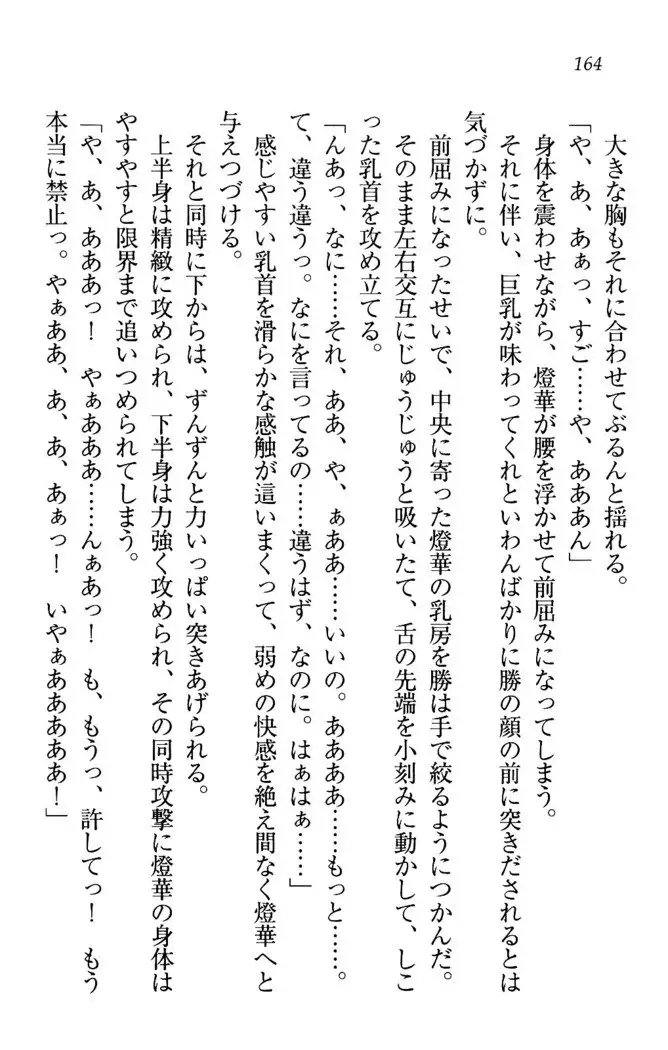 164
大きな胸もそれに合わせてぶるんと揺れる。
「や、あ、あぁっ、すご……や、あああん」
身体を震わせながら、燈華が腰を浮かせて前屈みになってしまう。
それに伴い、巨乳が味わってくれといわんばかりに勝の顔の前に突きだされるとは
気づかずに。
前屈みになったせいで、中央に寄った燈華の乳房を勝は手で絞るようにつかんだ。
そのまま左右交互にじゅうじゅうと吸いたて、舌の先端を小刻みに動かして、しこ
った乳首を攻め立てる。
「んあっ、なに……それ、ああ、や、ぁああ……いいの。ああああ……もっと……。
て、違う違うっ。なにを言ってるの……違うはず、なのに。はぁはぁ……」
感じやすい乳首を滑らかな感触が這いまくって、弱めの快感を絶え間なく燈華へと
与えつづける。
それと同時に下からは、ずんずんと力いっぱい突きあげられる。
上半身は精緻に攻められ、下半身は力強く攻められ、その同時攻撃に燈華の身体は
やすやすと限界まで追いつめられてしまう。
「や、あ、あああっ！　やぁあああ……んぁあっ！　も、もうっ、許してっ！　もう
本当に禁止っ。やぁああ、あ、あ、あぁっ！　いやぁあああああ！」